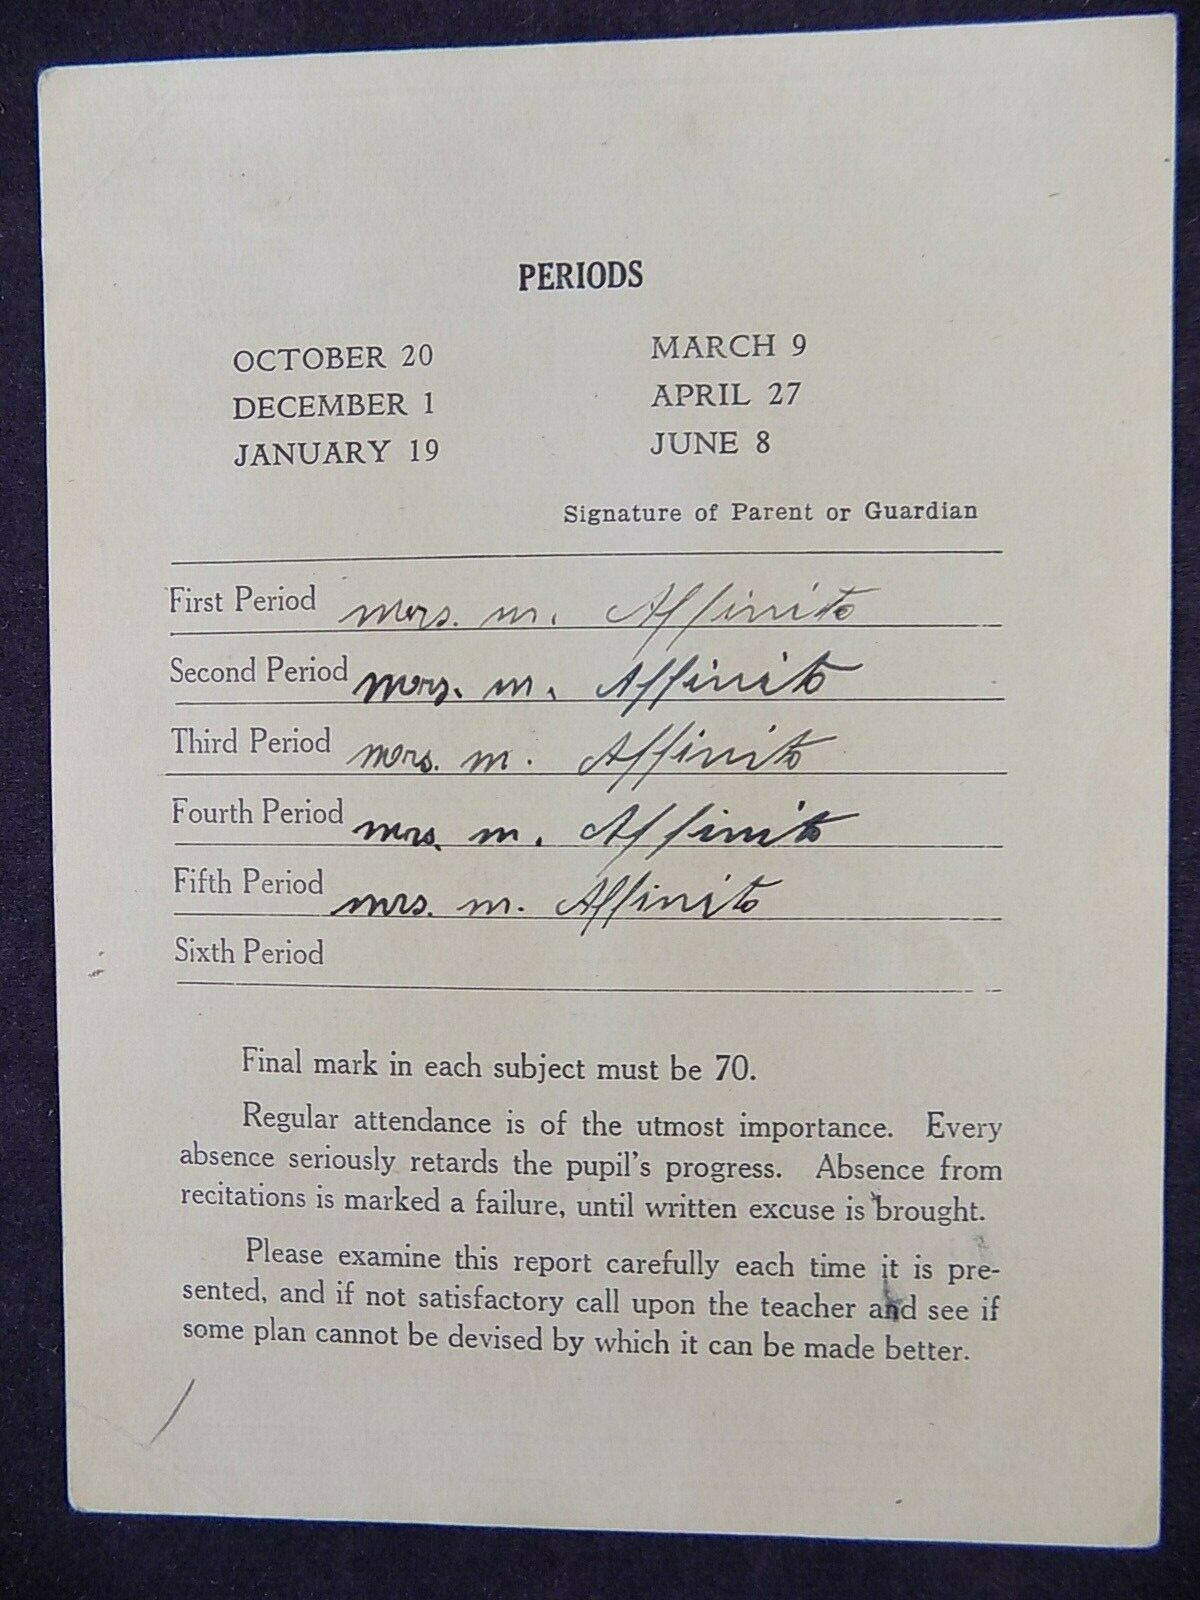 PERIODS
OCTOBER 20 MARCH 9
DECEMBER 1 APRIL 27
JANUARY 19 JUNE 8
Signature of Parent or Guardian
First Period Mrs. M. Affinito
Second Period Mrs. M. Affinito
Third Period Mrs. M. Affinito
Fourth Period Mrs. M. Affinito
Fifth Period Mrs. M. Affinito
Sixth Period
Final mark in each subject must be 70.
Regular attendance is of the utmost importance. Every
absence seriously retards the pupil's progress. Absence from
recitations is marked a failure, until written excuse is brought.
Please examine this report carefully each time it is pre-
sented, and if not satisfactory call upon the teacher and see if
some plan cannot be devised by which it can be made better.